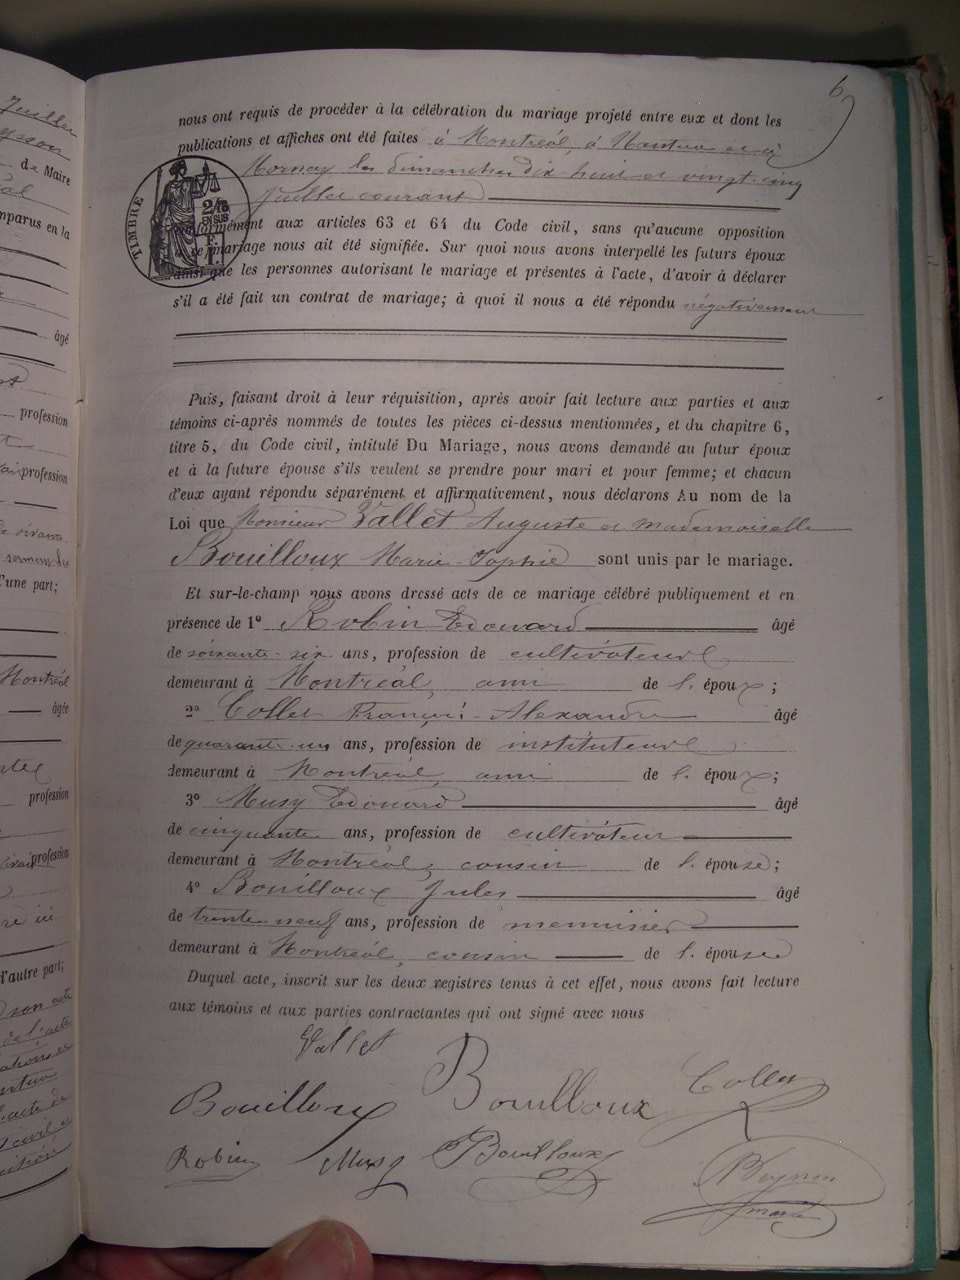 Juillet
de Maire
mparus en la
âgé
profession
profession
l'une part;
Montréal
âgée
profession
profession
d'autre part;
6
nous ont requis de procéder à la célébration du mariage projeté entre eux et dont les
publications et affiches ont été faites à Montréal, à Nantua et à
Mornay les dimanches dix-huit et vingt-cinq
Juillet courant
TIMBRE
2/10
EN SUS
conformément aux articles 63 et 64 du Code civil, sans qu'aucune opposition
à ce mariage nous ait été signifiée. Sur quoi nous avons interpellé les futurs époux
ainsi que les personnes autorisant le mariage et présentes à l'acte, d'avoir à déclarer
s'il a été fait un contrat de mariage; à quoi il nous a été répondu négativement
Puis, faisant droit à leur réquisition, après avoir fait lecture aux parties et aux
témoins ci-après nommés de toutes les pièces ci-dessus mentionnées, et du chapitre 6,
titre 5, du Code civil, intitulé Du Mariage, nous avons demandé au futur époux
et à la future épouse s'ils veulent se prendre pour mari et pour femme; et chacun
d'eux ayant répondu séparément et affirmativement, nous déclarons Au nom de la
Loi que Monsieur Vallet Auguste et mademoiselle
Bouilloux Marie-Sophie sont unis par le mariage.
Et sur-le-champ nous avons dressé acte de ce mariage célébré publiquement et en
présence de 1º Robin Edouard âgé
de soixante-six ans, profession de cultivateur
demeurant à Montréal, ami de l'époux;
2º Collet François-Alexandre âgé
de quarante-un ans, profession de instituteur
demeurant à Montréal, ami de l'époux;
3º Musy Edouard âgé
de cinquante ans, profession de cultivateur
demeurant à Montréal, cousin de l'épouse;
4º Bouilloux Jules âgé
de trente-neuf ans, profession de menuisier
demeurant à Montréal, cousin de l'épouse
Duquel acte, inscrit sur les deux registres tenus à cet effet, nous avons fait lecture
aux témoins et aux parties contractantes qui ont signé avec nous
Vallet
Bouilloux Bouilloux Collet
Robin Musy Bouilloux
maire